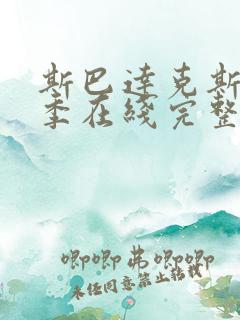 斯巴达克斯
季在线完整
唧唧弗唧唧
未经同意禁止转载